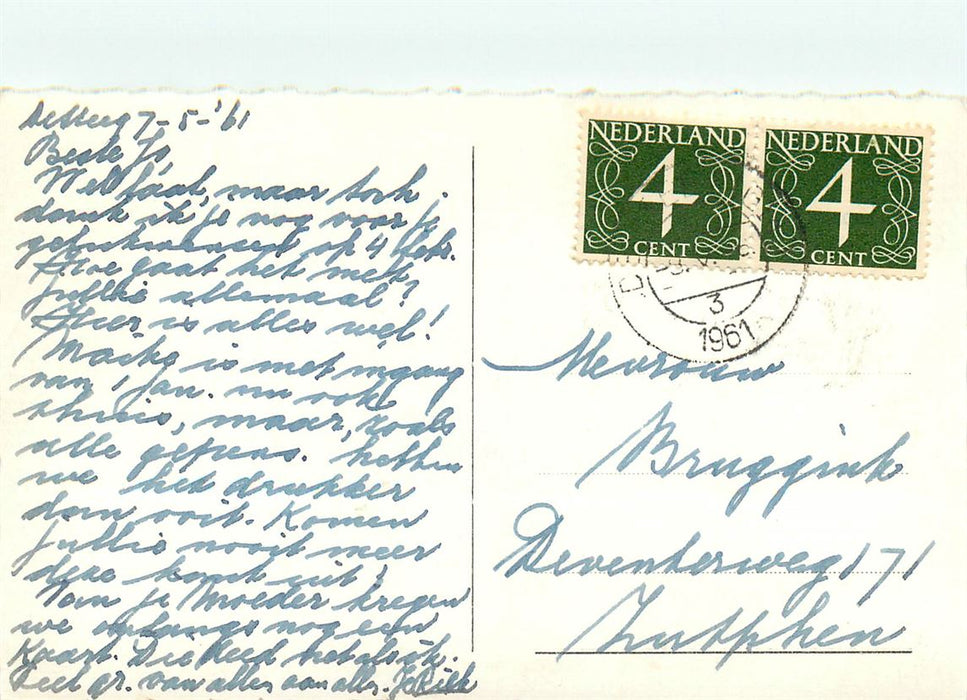 7-5-'61
Beste Jo,
Wel laat, maar toch
dank ik je nog voor je
op 4
Hoe gaat het met
jullie allemaal?
Hier is alles wel!
is met ingang
van 1 jan. nu ook
thuis, maar, zoals
alle gepens. hebben
we het drukker
dan ooit. Komen
jullie nooit meer
deze kant uit?
Van je Moeder kregen
we onlangs nog een
Kaart. Die
gr. van allen aan allen.
NEDERLAND
4
CENT
NEDERLAND
4
CENT
3
1961
Mevrouw
Bruggink
Deventerweg 171
Zutphen